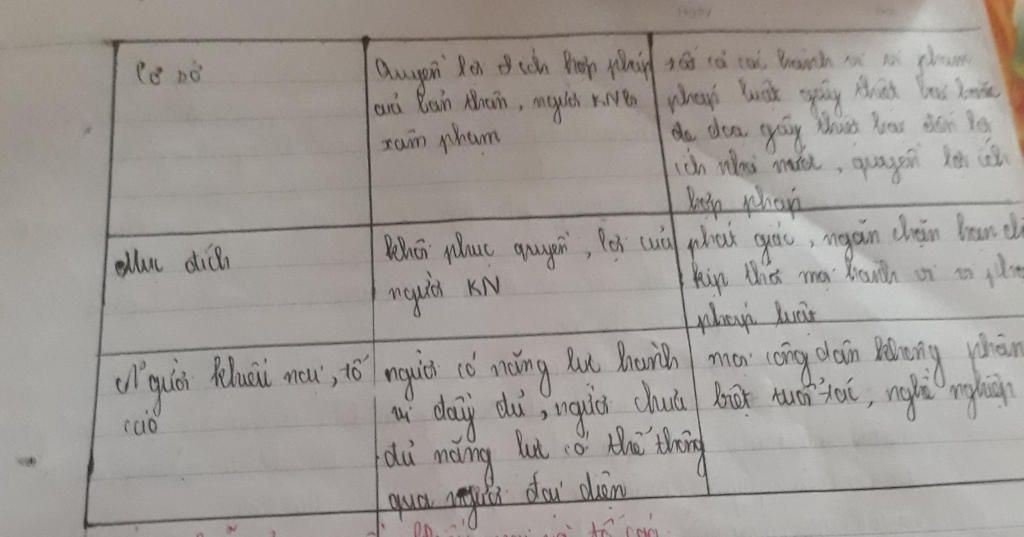 Cơ sở
Quyền lợi ích hợp pháp
của bản thân, người KN bị
xâm phạm
tất cả các hành vi vi phạm
pháp luật gây thiệt hại hoặc
đe dọa gây thiệt hại đến lợi
ích nhà nước, quyền lợi ích
hợp pháp
Mục đích
khôi phục quyền, lợi của
người KN
phát giác, ngăn chặn hạn chế
kịp thời mọi hành vi vi phạm
pháp luật
Người khiếu nại, tố
cáo
người có năng lực hành
vi đầy đủ, người chưa
đủ năng lực có thể thông
qua người đại diện
mọi công dân không phân
biệt tuổi tác, nghề nghiệp
tố cáo